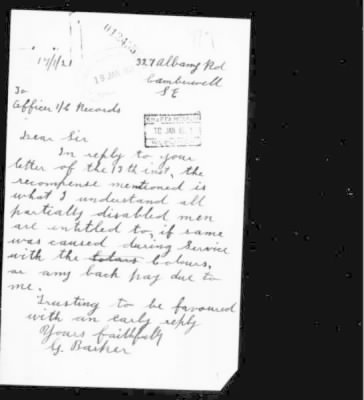 17/1/21
327 Albany Rd
Camberwell
S E
To
Officer i/c Records
Dear Sir
In reply to your
letter of the 13th inst, the
recompense mentioned is
what I understand all
partially disabled men
are entitled to, if same
was caused during Service
with the Colours,
or any back pay due to
me.
Trusting to be favoured
with an early reply
Yours faithfully
G. Barker